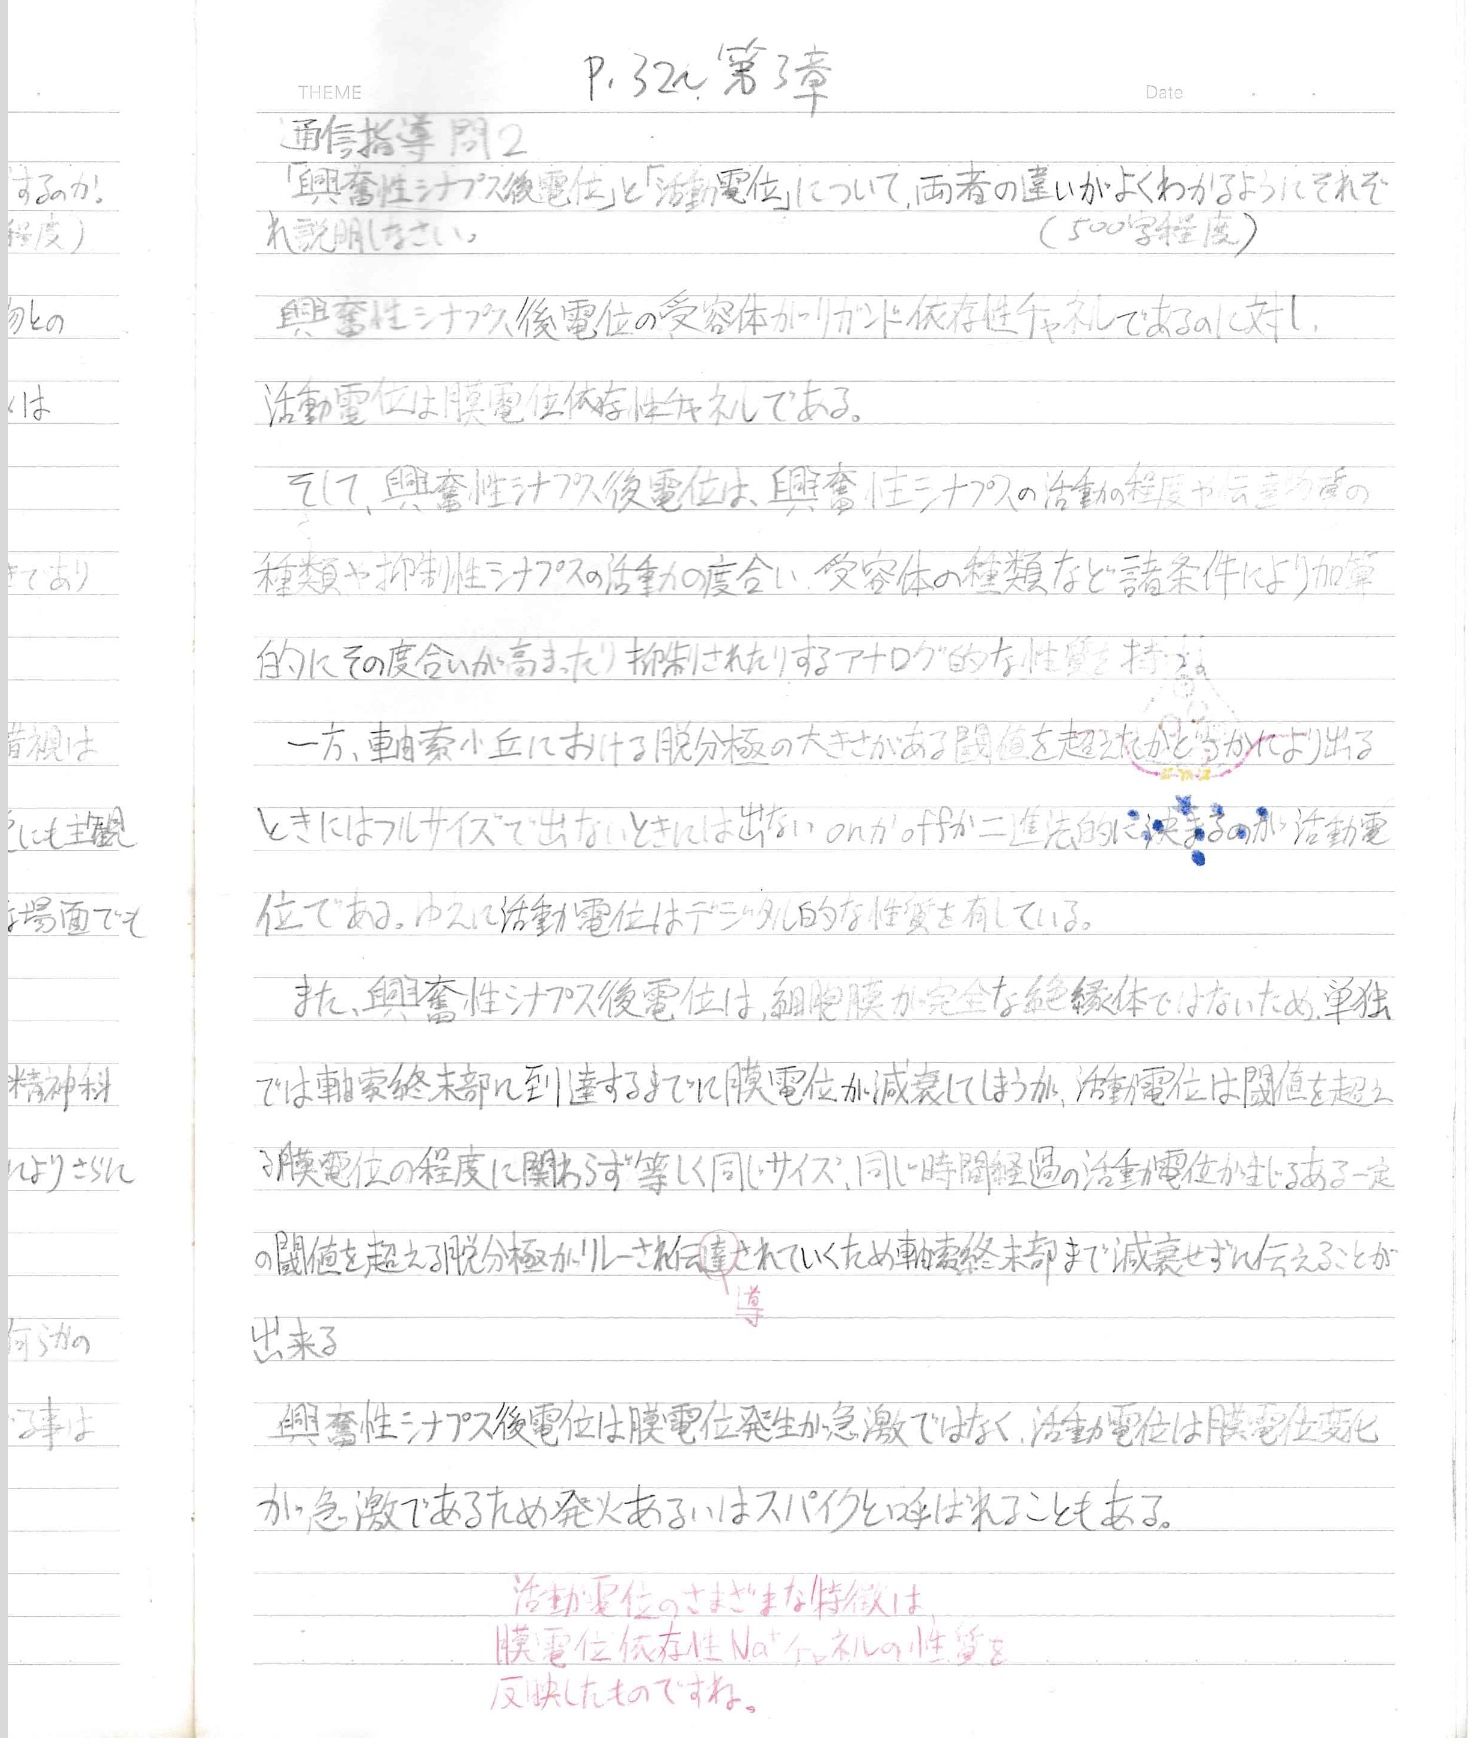 P.32~ 第3章
THEME
Date
通信指導 問2
「興奮性シナプス後電位」と「活動電位」について、両者の違いがよくわかるようにそれぞ
れ説明しなさい。 (500字程度)
興奮性シナプス後電位の受容体がリガンド依存性チャネルであるのに対し、
活動電位は膜電位依存性チャネルである。
そして、興奮性シナプス後電位は、興奮性シナプスの活動の程度や伝達物質の
種類や抑制性シナプスの活動の度合い、受容体の種類など諸条件により加算
的にその度合いが高まったり抑制されたりするアナログ的な性質を持つ。
一方、軸索小丘における脱分極の大きさがある閾値を超えたかどうかにより出る
ときにはフルサイズで出ないときには出ない onかoffか二進法的に決まるのが活動電
位である。ゆえに活動電位はデジタル的な性質を有している。
また、興奮性シナプス後電位は、細胞膜が完全な絶縁体ではないため、単独
では軸索終末部に到達するまでに膜電位が減衰してしまうが、活動電位は閾値を超え
る膜電位の程度に関わらず等しく同じサイズ、同じ時間経過の活動電位が生じるある一定
の閾値を超える脱分極がリレーされ伝達されていくため軸索終末部まで減衰せずに伝えることが
導
出来る
興奮性シナプス後電位は膜電位発生が急激ではなく、活動電位は膜電位変化
が急激であるため発火あるいはスパイクと呼ばれることもある。
活動電位のさまざまな特徴は、
膜電位依存性Na⁺チャネルの性質を
反映したものですね。
するのか。
程度)
物との
は
きであり
錯視は
にも主観
場面でも
精神科
によりさらに
何らかの
る事は